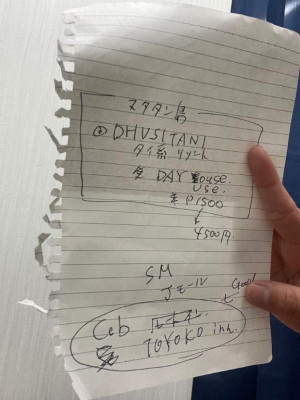 マクタン島
② DHUSITANI
タイ系リゾート
DAY use.
P1500
↓
4500円
SM
Jモール
Good
Ceb
TOYOKO inn.